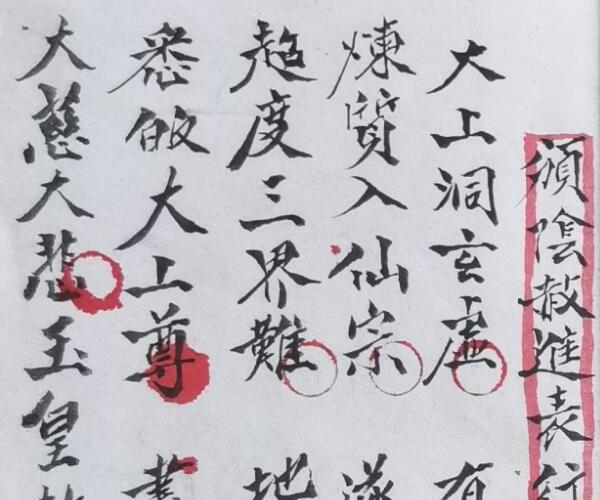 頒陰赦進表行
大上洞玄虛 有
煉質入仙宗
超度三界難 地
悉皈大上尊
大慈大悲玉皇